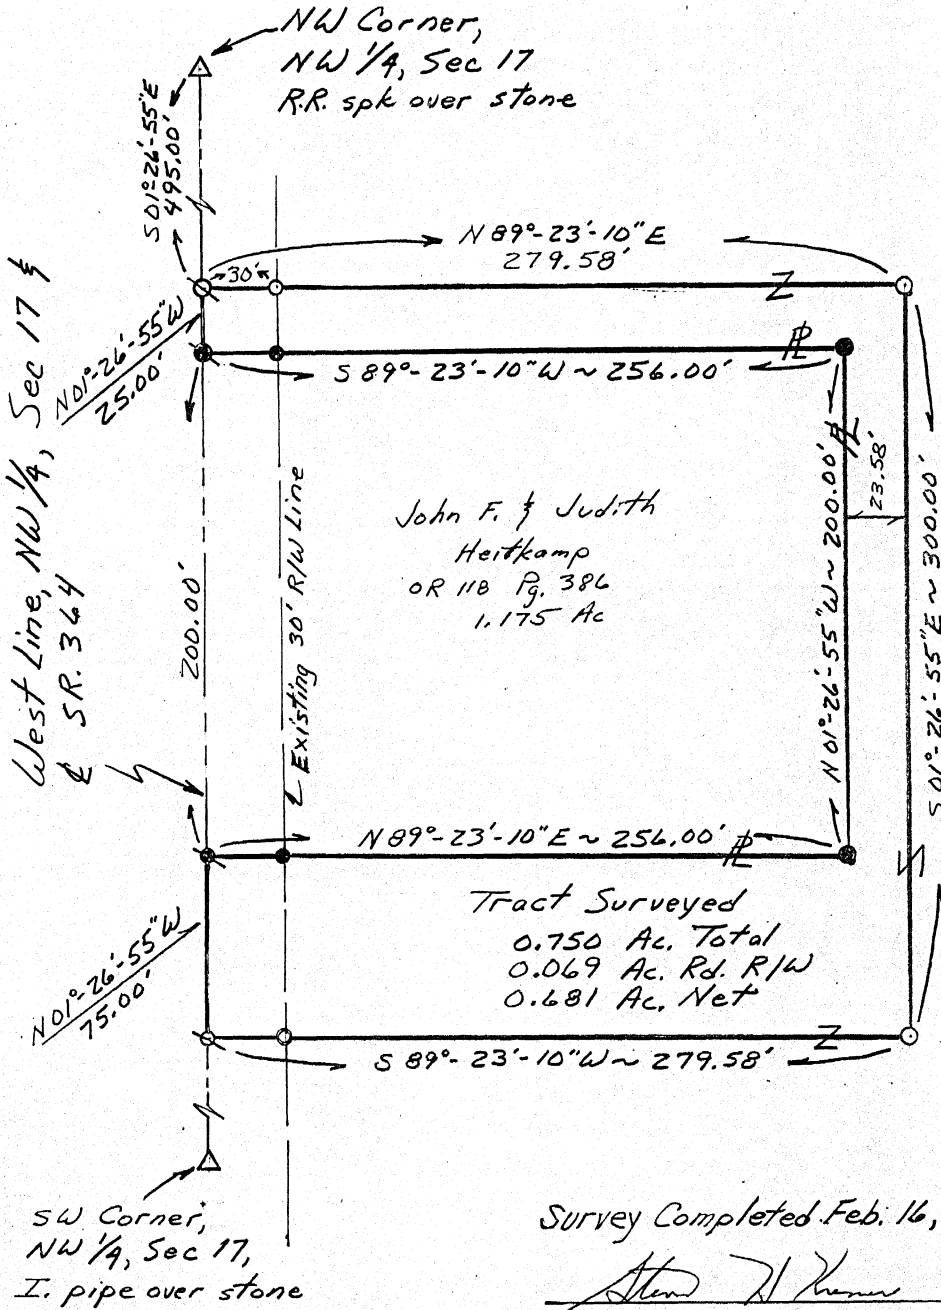 NW Corner,
NW 1/4, Sec 17
R.R. spk over stone
S01°-26'-55"E
495.00'
N 89°-23'-10" E
279.58'
30'
Z
N01°-26'-55"W
25.00'
PL
S 89°-23'-10"W ~ 256.00'
West Line, NW 1/4, Sec 17 &
℄ SR. 364
200.00'
Existing 30' R/W Line
John F. & Judith
Heitkamp
OR 118 Pg. 386
1.175 Ac
N01°-26'-55"W ~ 200.00'
PL
23.58'
S01°-26'-55"E ~ 300.00'
N 89°-23'-10"E ~ 256.00'
PL
Tract Surveyed
0.750 Ac. Total
0.069 Ac. Rd. R/W
0.681 Ac. Net
N01°-26'-55"W
75.00'
Z
S 89°-23'-10"W ~ 279.58'
SW Corner,
NW 1/4, Sec 17,
I. pipe over stone
Survey Completed Feb. 16,